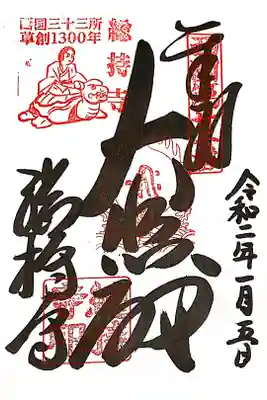 西国三十三所
草創1300年
總持寺
奉拝
大悲殿
総持寺
令和二年一月五日